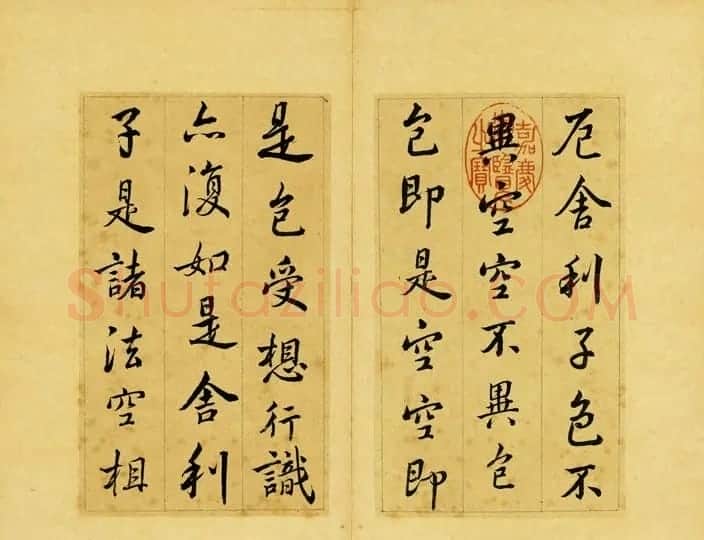 厄舍利子色不
異空空不異色
色即是空空即
是色受想行識
亦復如是舍利
子是諸法空相
嘉慶御覽之寶
Shufaziliao.COM